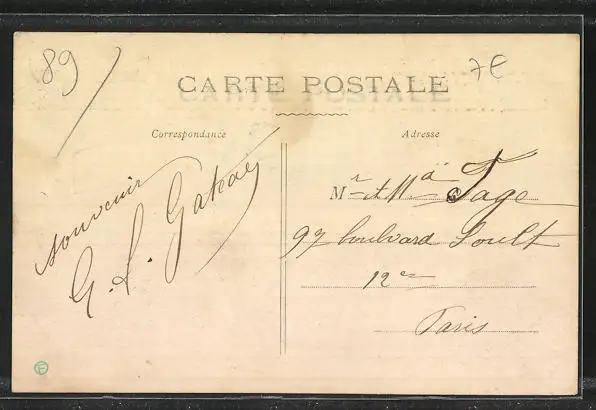 89
7€
CARTE POSTALE
Correspondance
Adresse
souvenir
G. L.
Mr et Ma Tage
97 boulvard Soult
12e
Paris